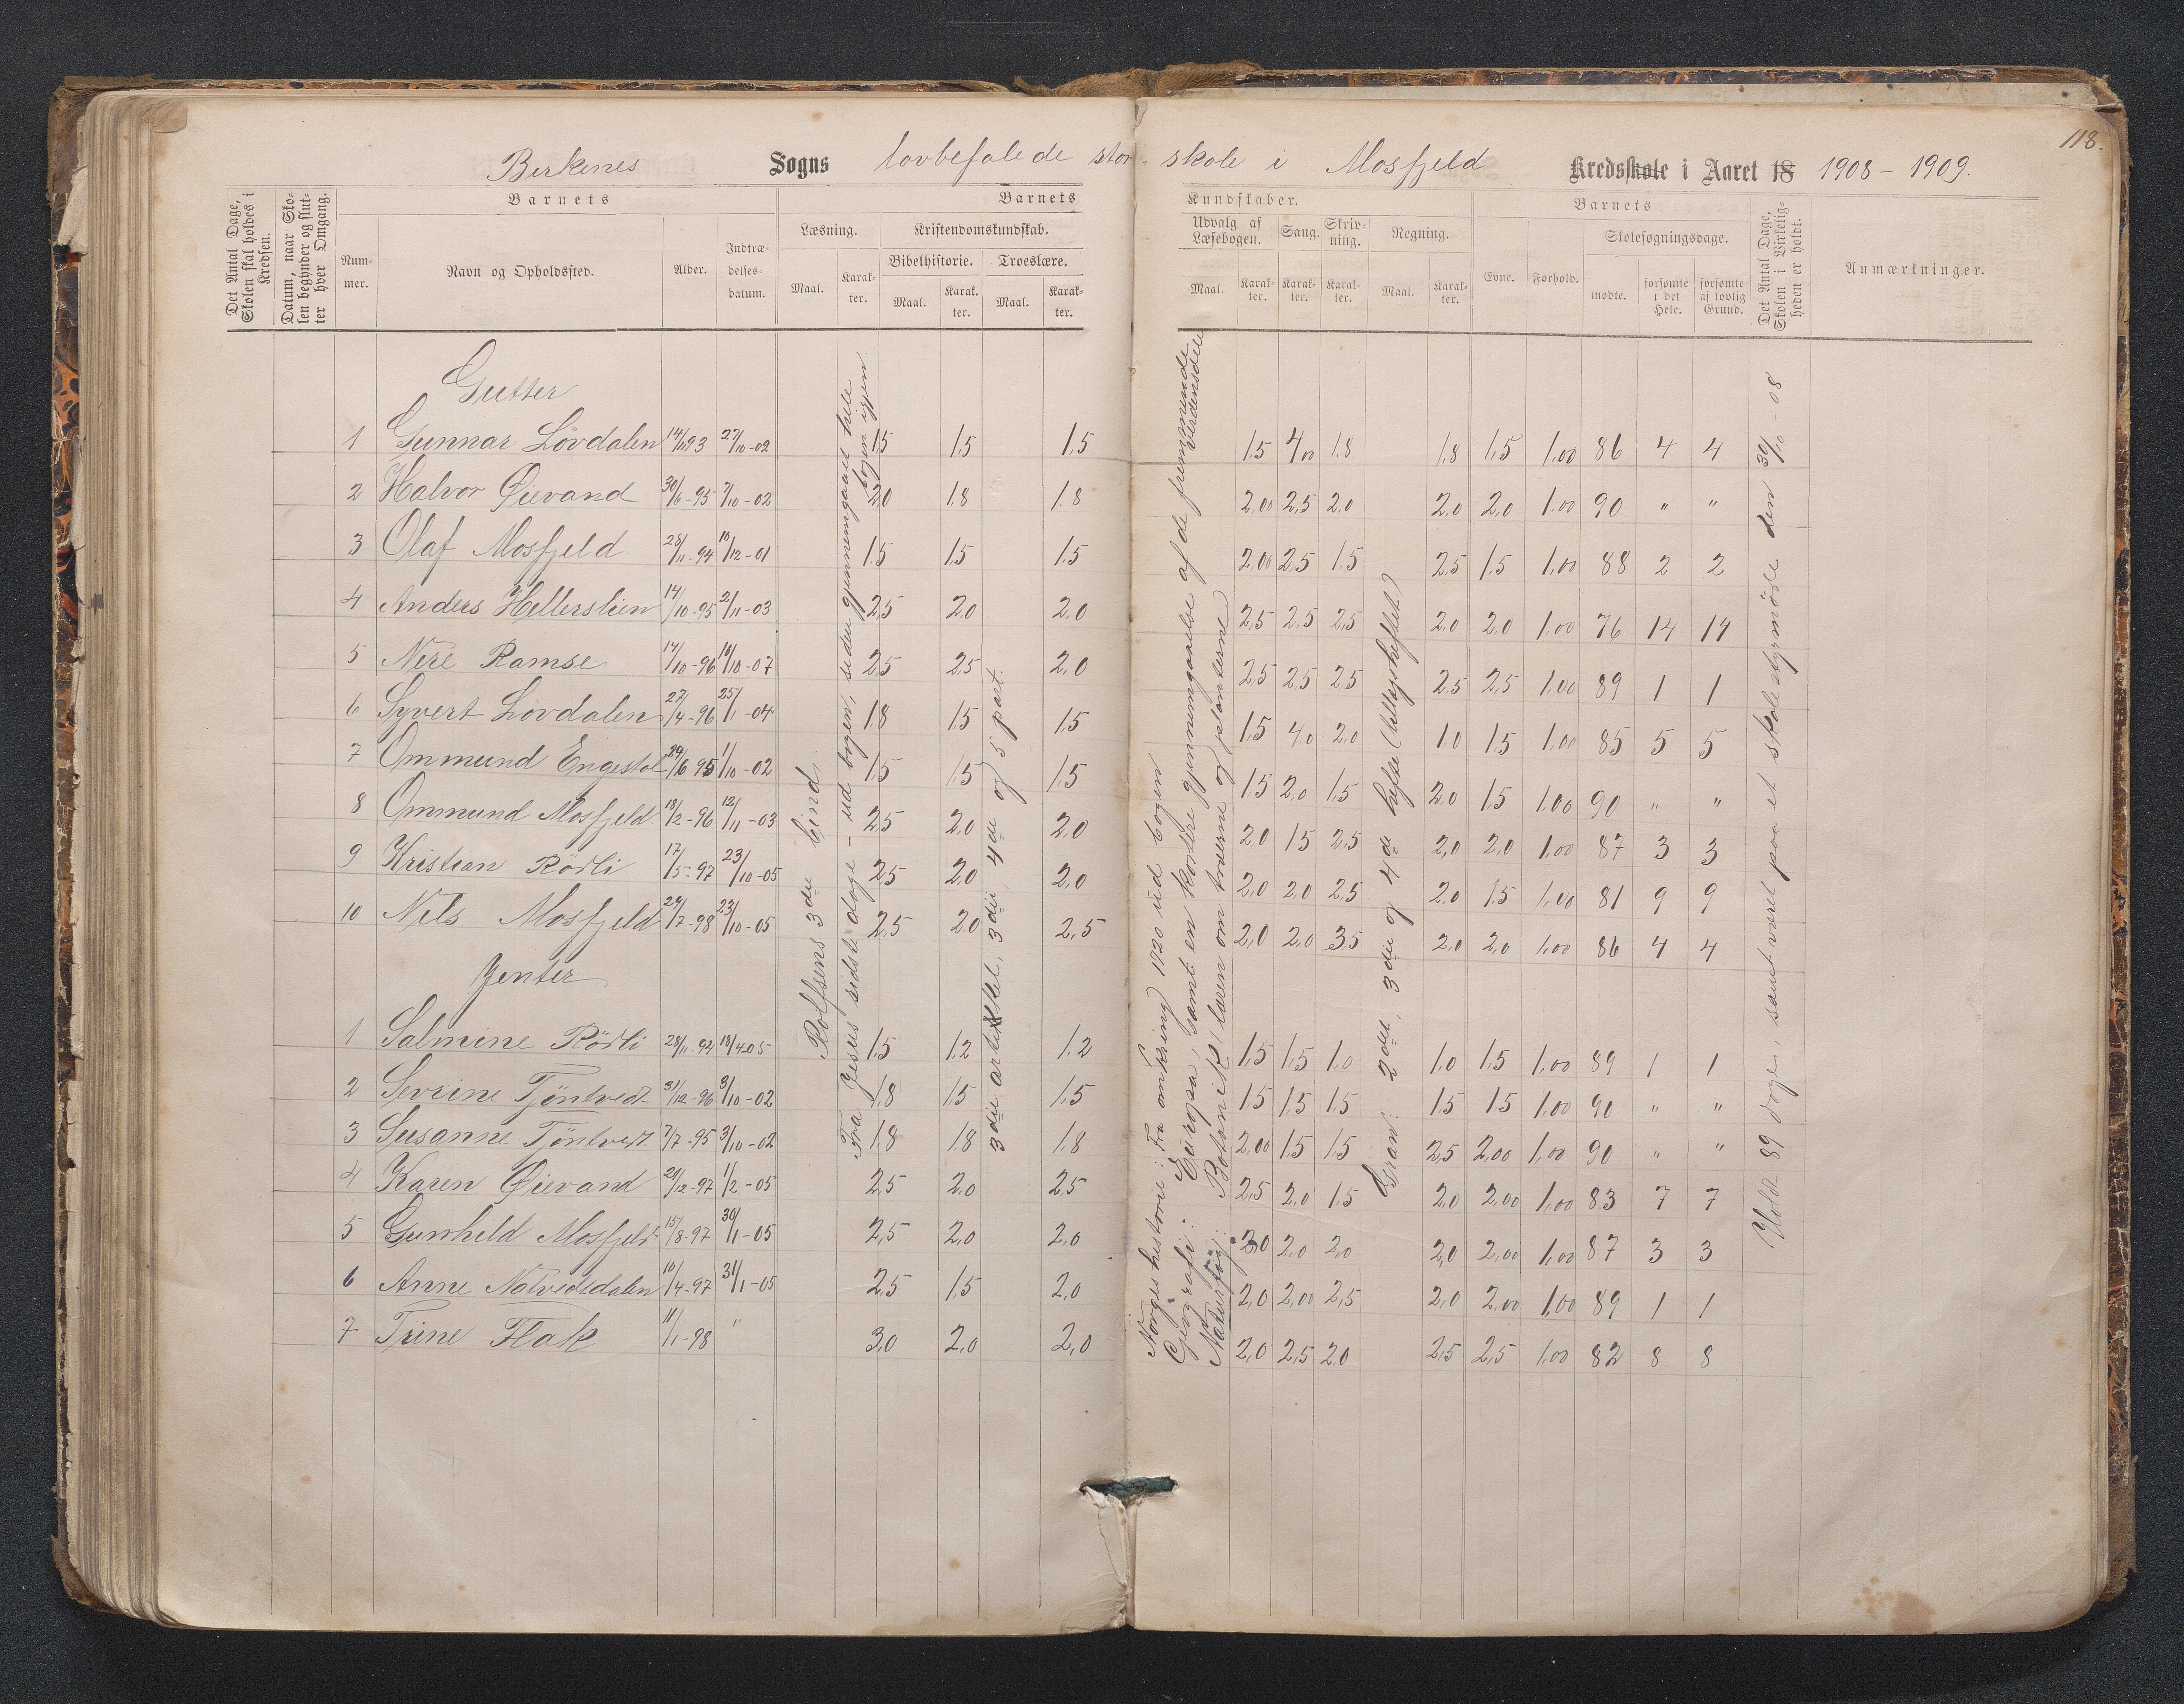 118.
Birkenes Sogns lovbefalede stor-skole i Mosfjeld Kredsskole i Aaret 18 1908 - 1909.
Det Antal Dage, Skolen skal holdes i Kredsen.
Datum, naar Skolen begynder og slutter hver Omgang.
Barnets
Nummer.
Navn og Opholdssted.
Alder.
Indtrædelsesdatum.
Barnets
Læsning.
Maal.
Karakter.
Kristendomskundskab.
Bibelhistorie.
Maal.
Karakter.
Troeslære.
Maal.
Karakter.
Kundskaber.
Udvalg af Læsebogen.
Maal.
Karakter.
Sang.
Karakter.
Skrivning.
Karakter.
Regning.
Maal.
Karakter.
Barnets
Evne.
Forhold.
Skolesøgningsdage.
mødte.
forsømte i det Hele.
forsømte af lovlig Grund.
Det Antal Dage, Skolen i Virkeligheden er holdt.
Anmærkninger.
Gutter
1 Gunnar Lövdalen 14/11 93 27/10-02 1,5 1,5 1,5 1,5 4,00 1,8 1,8 1,5 1,00 86 4 4
2 Halvor Øievand 30/6-95 7/10-02 2,0 1,8 1,8 2,00 2,5 2,0 2,0 2,0 1,00 90 " "
3 Olaf Mosfjeld 28/11-94 10/12-01 1,5 1,5 1,5 2,00 2,5 1,5 2,5 1,5 1,00 88 2 2
4 Anders Hellerslien 14/10-95 2/11-03 2,5 2,0 2,0 2,5 2,5 2,5 2,0 2,0 1,00 76 14 14
5 Nere Ramse 14/10-96 14/10-07 2,5 2,5 2,0 2,5 2,5 2,5 2,5 2,5 1,00 89 1 1
6 Syvert Lövdalen 27/4-96 25/1-04 1,8 1,5 1,5 1,5 4,0 2,0 1,0 1,5 1,00 85 5 5
7 Ommund Engestøl 29/6 95 1/10-02 1,5 1,5 1,5 1,5 2,0 1,5 2,0 1,5 1,00 90 " "
8 Ommund Mosfjeld 18/2-96 12/11-03 2,5 2,0 2,0 2,0 1,5 2,5 2,0 2,0 1,00 87 3 3
9 Kristian Rödli 17/5-97 23/10-05 2,5 2,0 2,0 2,0 2,0 2,5 2,0 1,5 1,00 81 9 9
10 Nels Mosfjeld 29/7-98 23/10-05 2,5 2,0 2,5 2,0 2,0 3,5 2,0 2,0 1,00 86 4 4
Jenter
1 Salmine Rödli 28/11-94 18/4 05 1,5 1,2 1,2 1,5 1,5 1,0 1,0 1,5 1,00 89 1 1
2 Sevrine Tjöntvedt 31/12-96 3/10-02 1,8 1,5 1,5 1,5 1,5 1,5 1,5 1,5 1,00 90 " "
3 Susanne Tjöntvedt 7/7-95 3/10-02 1,8 1,8 1,8 2,00 1,5 1,5 2,5 2,00 1,00 90 " "
4 Karen Øievand 29/12-97 1/2-05 2,5 2,0 2,5 2,5 2,0 1,5 2,0 2,00 1,00 83 7 7
5 Gunhild Mosfjeld 15/8-97 30/1-05 2,5 2,0 2,0 2,0 2,0 2,0 2,0 2,00 1,00 87 3 3
6 Anne Natvedsdalen 10/4-97 31/1-05 2,5 1,5 2,0 2,0 2,00 2,5 2,0 2,00 1,00 89 1 1
7 Trine Flak 11/1-98 " 3,0 2,0 2,0 2,0 2,5 2,0 2,5 2,5 1,00 82 8 8
Rolfsens 3die bind.
Fra Jesus sidste dage - ud bogen, siden gjennemgaaet hele bogen igjen.
3die artikkel, 3die, 4de og 5 part.
Norges historie: Fra omkring 1720 ud bogen
Geografi: Europa, samt en kortere gjennemgaaelse af de fremmede verdensdele
Naturfag: Botanik (læren om træerne og planterne)
Gran: 2det, 3die og 4de hefte (Utløgsheftet)
Holdt 89 dage, samt været paa et skolestyrmöde den 30/10-08